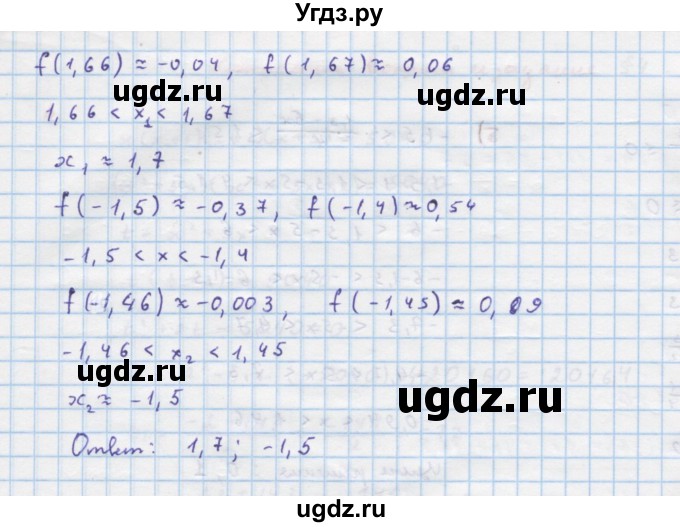 Угдз.ру
f(1,66) ≈ -0,04, f(1,67) ≈ 0,06
угдз.ru
1,66 < x₁ < 1,67
x₁ ≈ 1,7
f(-1,5) ≈ -0,37, f(-1,4) ≈ 0,54
-1,5 < x < -1,4
f(-1,46) ≈ -0,003, f(-1,45) ≈ 0,09
-1,46 < x₂ < 1,45
ugdz.ru
x₂ ≈ -1,5
ugdz.ru
Ответ: 1,7; -1,5
ugdz.ru